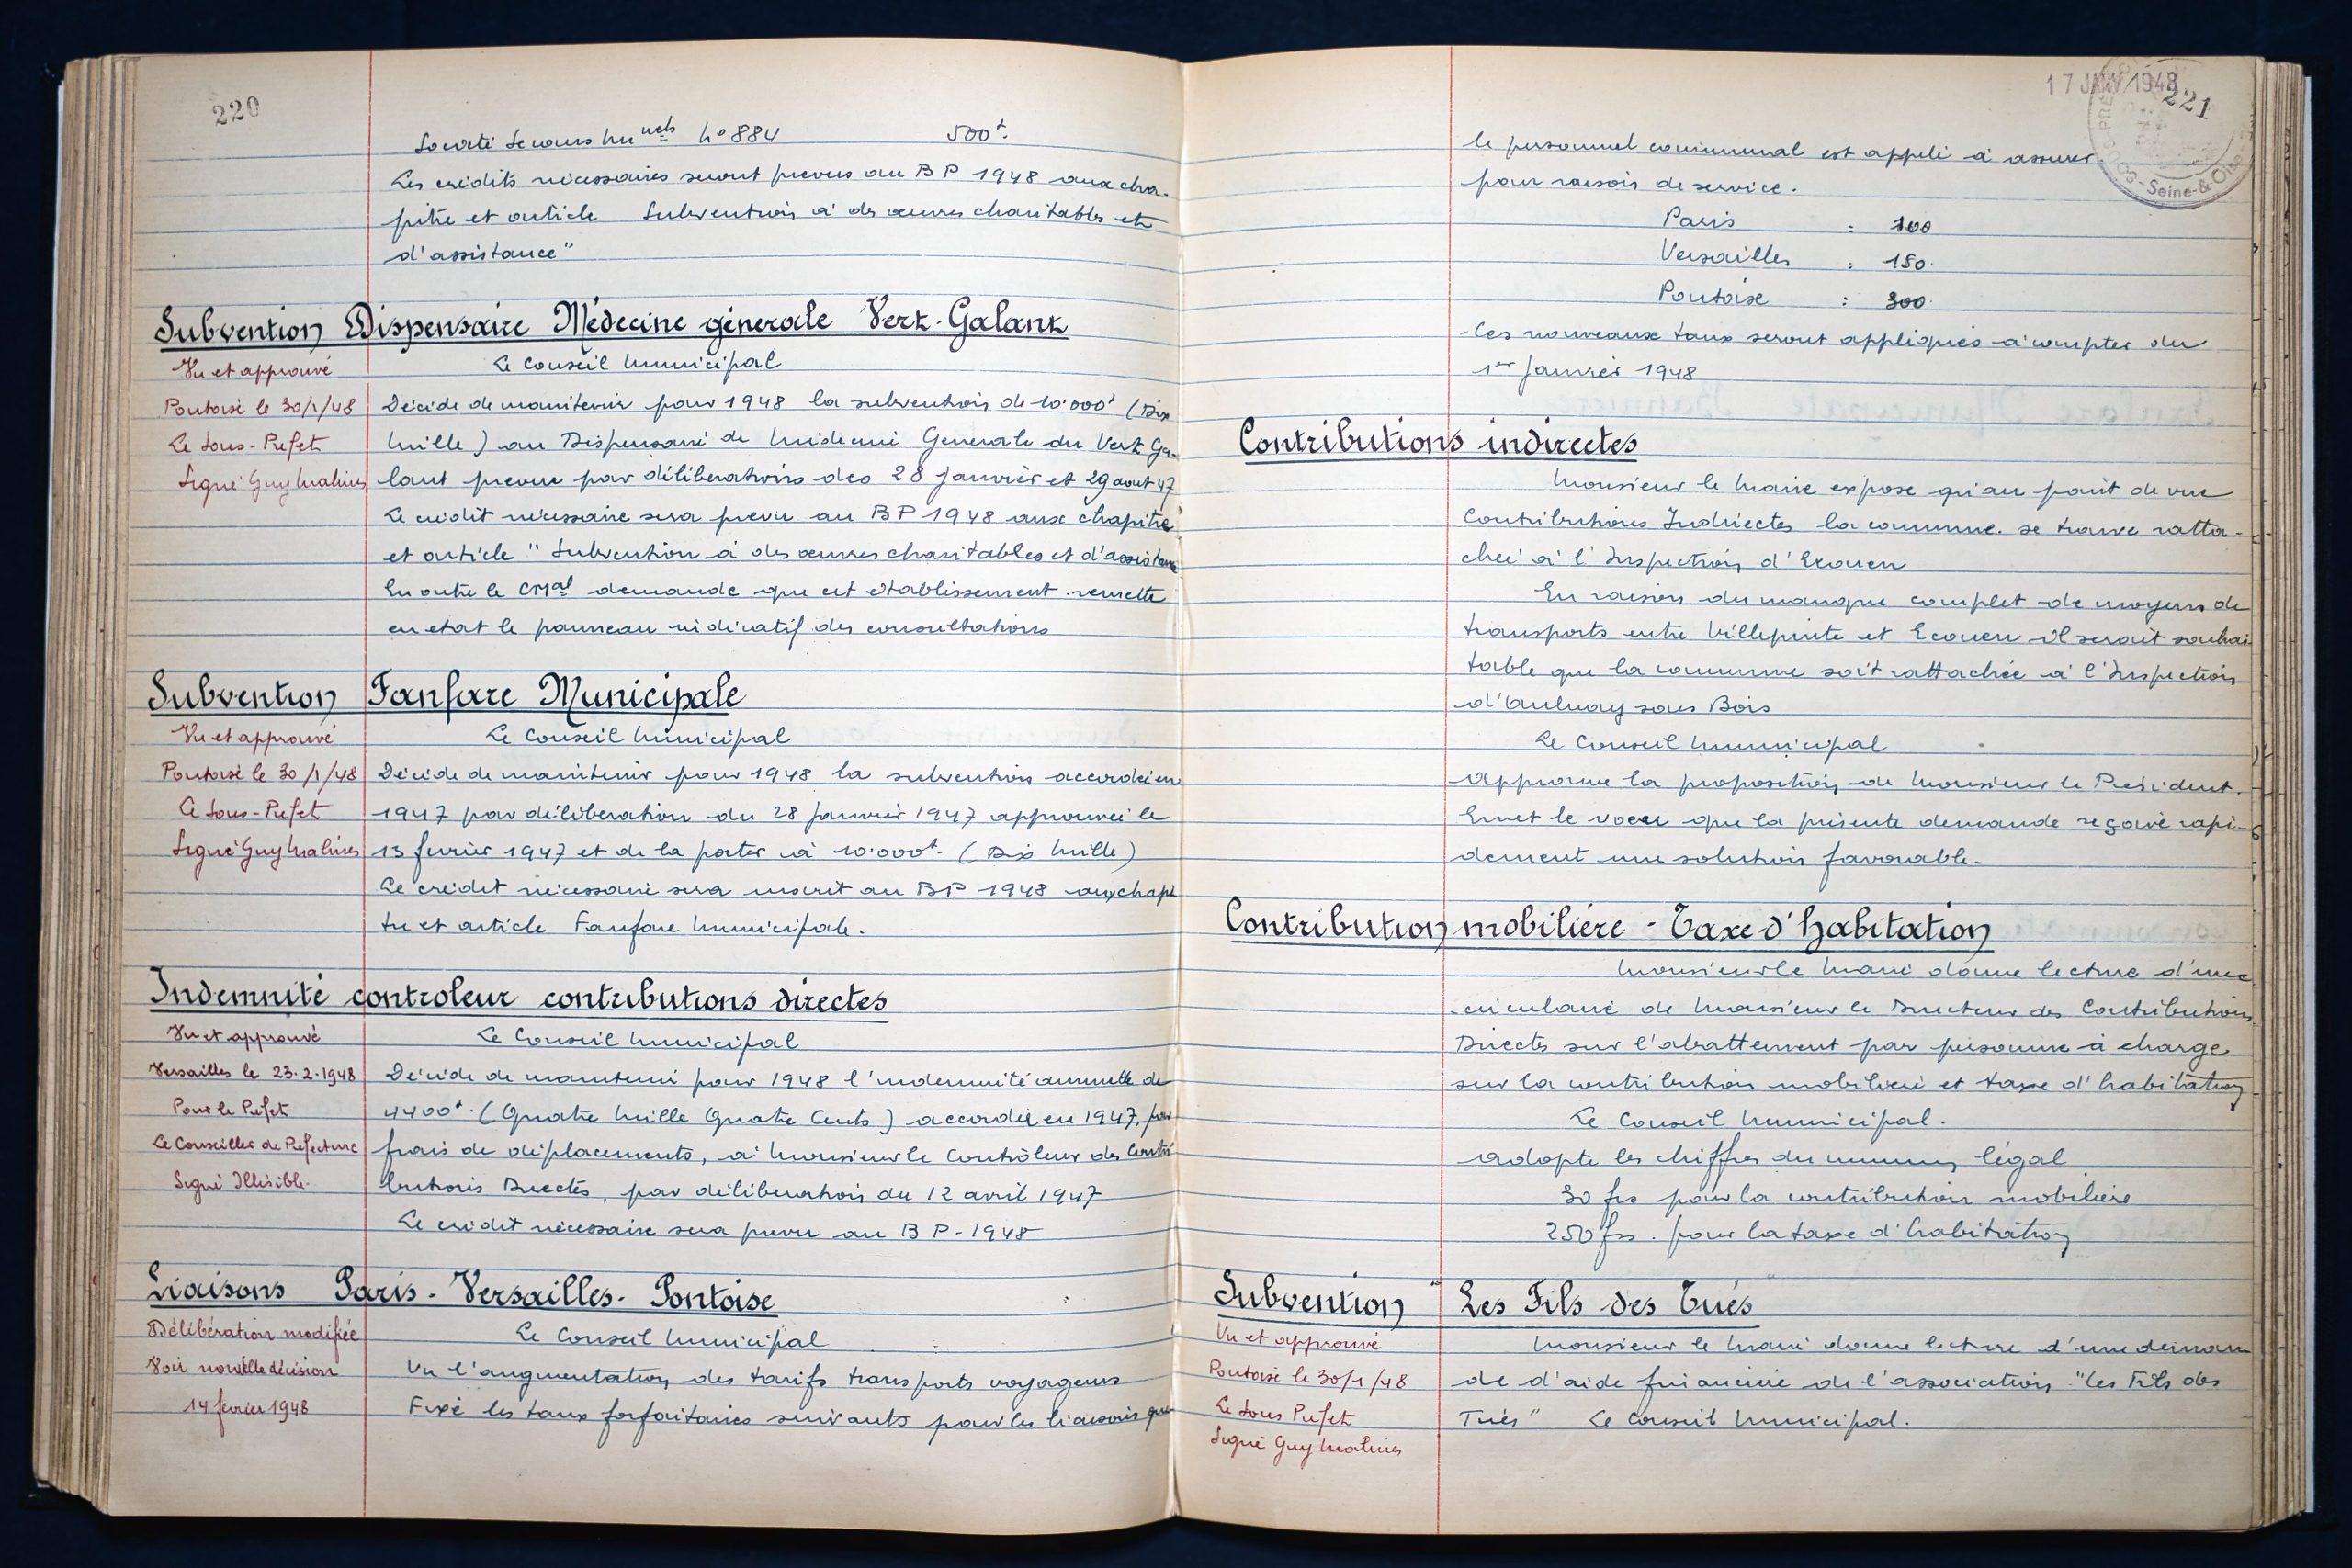 220
Societé Secours Mu^uels N° 884 500^f.
Les crédits nécessaires seront prevus au BP 1948 aux cha-
pitre et article Subvention à des œuvres charitables et
d'assistance"
Subvention Dispensaire Médecine génerale Vert-Galant
Vu et approuvé
Pontoise le 30/1/48
Le Sous-Prefet
Signé Guy Malines
Le Conseil Municipal
Décide de maintenir pour 1948 la subvention de 10.000^f (Dix
Mille) au Dispensaire de Médecine Generale du Vert Ga-
lant prevue par déliberations des 28 Janvier et 29 aout 47
Le crédit nécessaire sera prevu au BP 1948 aux chapitre
et article " Subvention à des œuvres charitables et d'assistance
En outre le CM^al demande que cet établissement remette
en etat le panneau indicatif des consultations
Subvention Fanfare Municipale
Vu et approuvé
Pontoise le 30/1/48
Le Sous-Prefet
Signé Guy Malines
Le Conseil Municipal
Décide de maintenir pour 1948 la subvention accordée en
1947 par déliberation du 28 Janvier 1947 approuvée le
13 fevrier 1947 et de la porter à 10.000^f. (Dix Mille)
Le credit nécessaire sera inscrit au BP 1948 aux chapi
tre et article Fanfare Municipale.
Indemnité controleur contributions directes
Vu et approuvé
Versailles le 23.2.1948
Pour le Prefet
Le Conseiller de Prefecture
Signé Illisible.
Le Conseil Municipal
Décide de maintenir pour 1948 l'indemnité annuelle de
4400^f. (Quatre Mille Quatre Cents) accordée en 1947, pour
frais de déplacements, à Monsieur le Contrôleur des Contri
butions Directes, par déliberation du 12 avril 1947
Le credit nécessaire sera prevu au B P - 1948
Liaisons Paris - Versailles - Pontoise
Délibération modifiée
Voir nouvelle décision
14 fevrier 1948
Le Conseil Municipal
Vu l'augmentation des tarifs transports voyageurs
Fixe les taux forfaitaires suivants pour les liaisons que
17 JANV 1948
221
Seine-&-Oise
le personnel communal est appelé à assurer
pour raison de service.
Paris : 100
Versailles : 150.
Pontoise : 300.
Ces nouveaux taux seront appliqués à compter du
1^er Janvier 1948
Contributions indirectes
Monsieur le Maire expose qu'au point de vue
Contributions Indirectes la commune se trouve ratta-
chée à l'Inspection d'Ecouen
En raison du manque complet de moyens de
transports entre Villepinte et Ecouen il serait souhai-
table que la commune soit rattachée à l'Inspection
d'Aulnay sous Bois
Le Conseil Municipal
Approuve la proposition de Monsieur le Président.
Emet le voeu que la présente demande reçoive rapi-
dement une solution favorable.
Contribution mobilière - Taxe d'habitation
Monsieur le Maire donne lecture d'une
circulaire de Monsieur le Directeur des Contributions
Directes sur l'abattement par personne à charge
sur la contribution mobilière et taxe d'habitation
Le Conseil Municipal.
Adopte les chiffres du minimum légal
30 frs pour la contribution mobilière
250 frs. pour la taxe d'habitation
Subvention "Les Fils des Tués"
Vu et approuvé
Pontoise le 30/1/48
Le Sous Prefet
Signé Guy Malines
Monsieur le Maire donne lecture d'une deman
de d'aide financière de l'association "Les Fils des
Tués" Le Conseil Municipal.